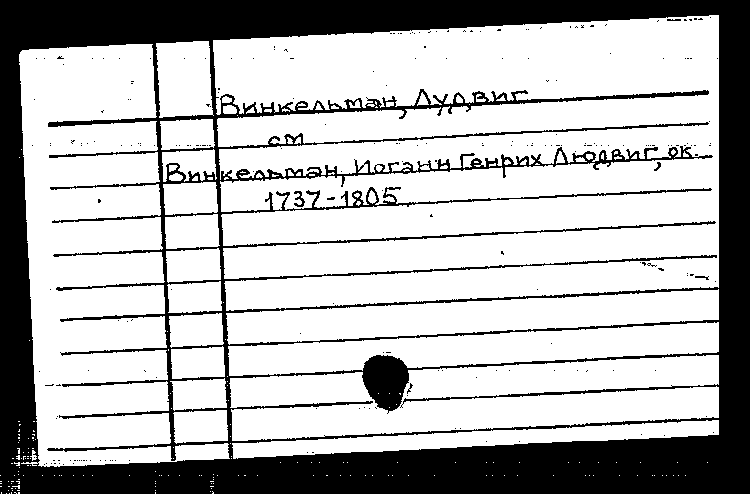 Винкельман, Лудвиг
см
Винкельман, Иоганн Генрих Людвиг, ок.
1737-1805.